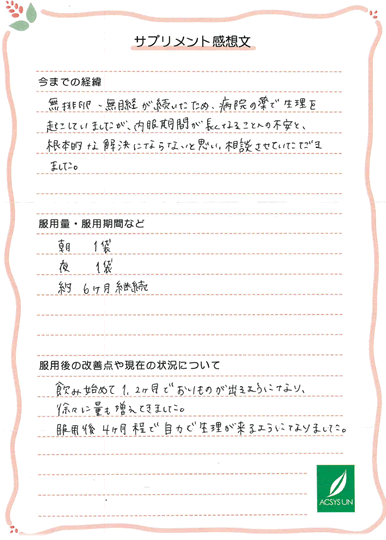 サプリメント感想文
今までの経緯
無排卵・無月経が続いたため、病院の薬で生理を
起こしていましたが、内服期間が長くなることへの不安と、
根本的な解決にならないと思い、相談させていただき
ました。
服用量・服用期間など
朝 1袋
夜 1袋
約 6ヶ月継続
服用後の改善点や現在の状況について
飲み始めて1、2ヶ月でおりものが出るようになり、
徐々に量も増えてきました。
服用後4ヶ月程で自力で生理が来るようになりました。
ACSYSUN